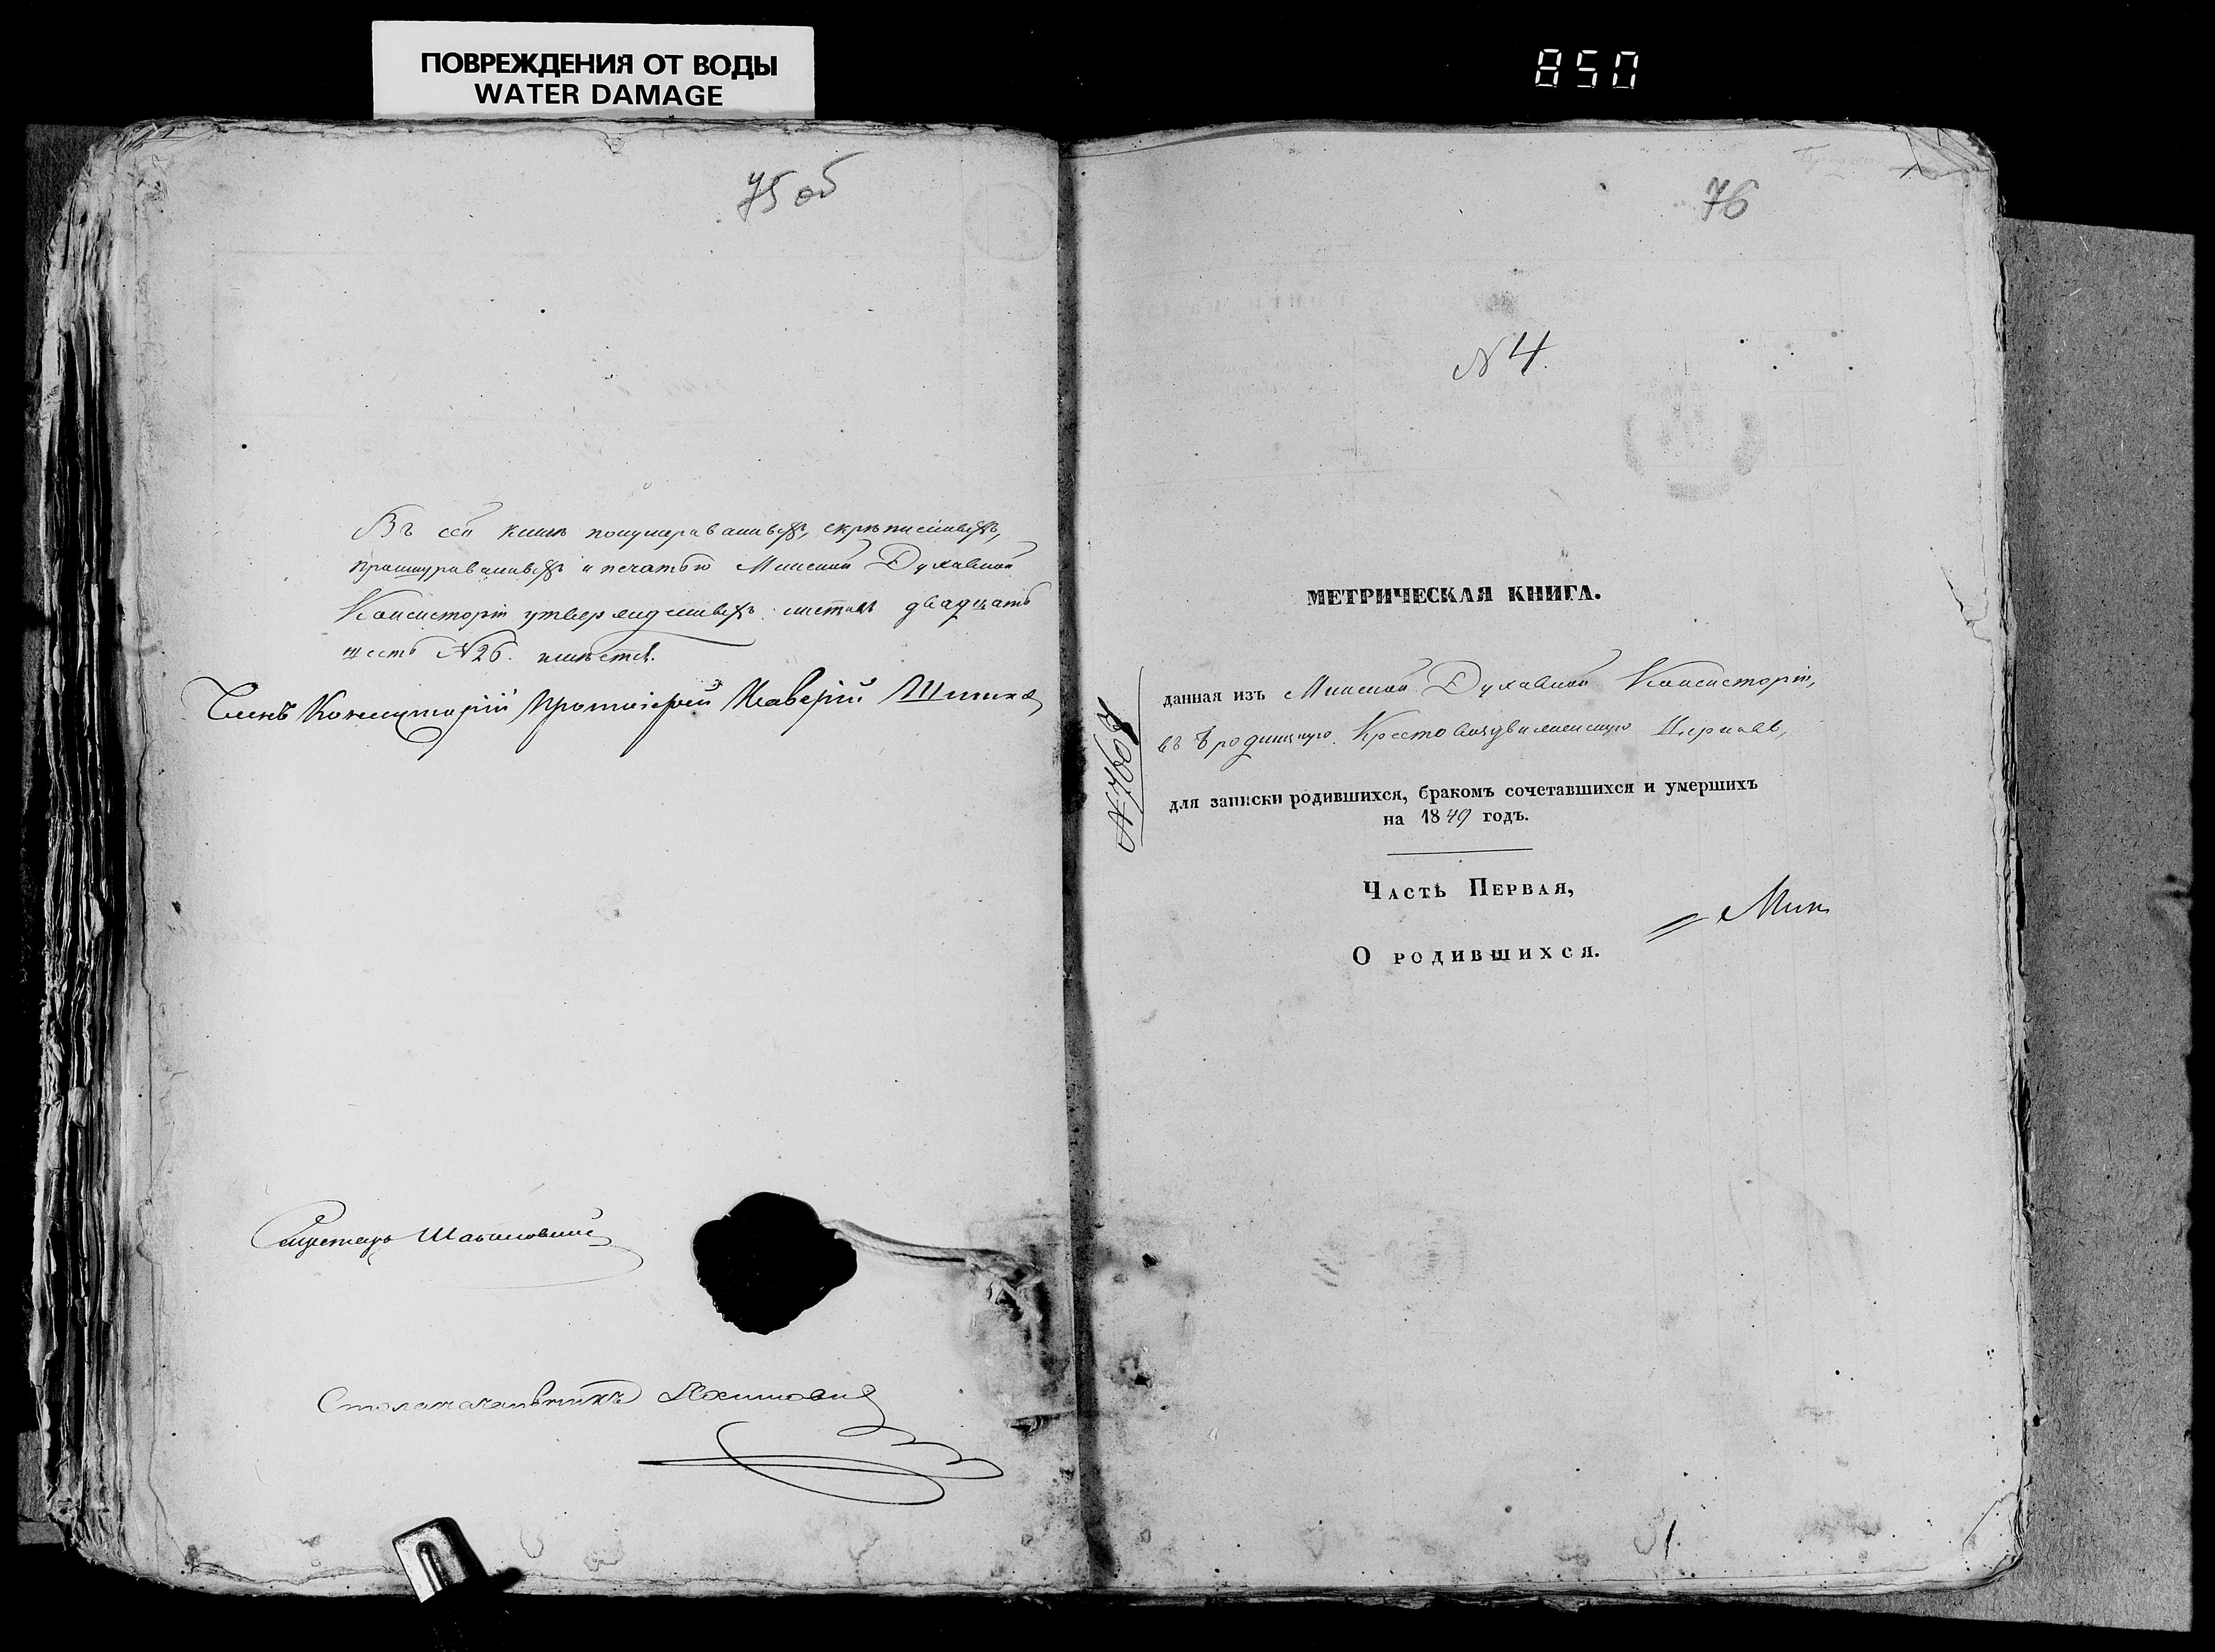 ПОВРЕЖДЕНИЯ ОТ ВОДЫ
WATER DAMAGE
850
75 об
Въ сей книгѣ понумерованныхъ, скрѣпленныхъ,
прошнурованныхъ и печатью Минской Духовной
Консисторіи утвержденныхъ листовъ двадцать
шесть N 26. имѣется.
Членъ Консисторіи Протоіерей
Секретарь
Столоначальникъ
76
N 4.
МЕТРИЧЕСКАЯ КНИГА.
данная изъ Минской Духовной Консисторіи,
въ Крестовоздвиженскую Церковь,
для записки родившихся, бракомъ сочетавшихся и умершихъ
на 1849 годъ.
Часть Первая,
Мин
О родившихся.